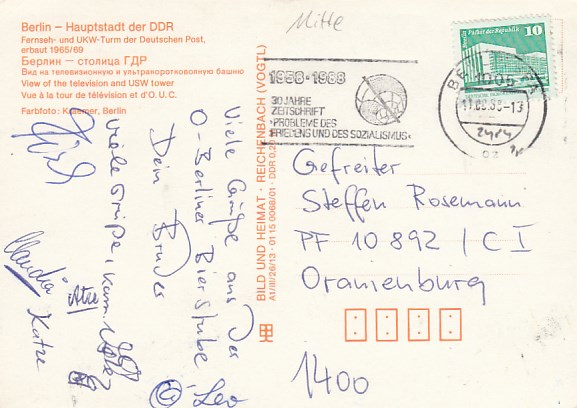 Berlin – Hauptstadt der DDR
Fernseh- und UKW-Turm der Deutschen Post,
erbaut 1965/69
Берлин — столица ГДР
Вид на телевизионную и ультракоротковолновую башню
View of the television and USW tower
Vue à la tour de télévision et d'O. U. C.
Farbfoto: Kraemer, Berlin
Mitte
1958-1988
30 JAHRE
ZEITSCHRIFT
»PROBLEME DES
FRIEDENS UND DES SOZIALISMUS«
10
1005
-13
Viele Grüße aus der
O-Berliner Bierstube
Dein Bruder
Leo
Viele Grüße,
Claudia
Atze
Katze
BILD UND HEIMAT · REICHENBACH (VOGTL)
A1/III/26/13 · 01 15 0068/01 · DDR 0,20
Gefreiter
Steffen Rosemann
PF 10 892 / C I
Oranienburg
1400